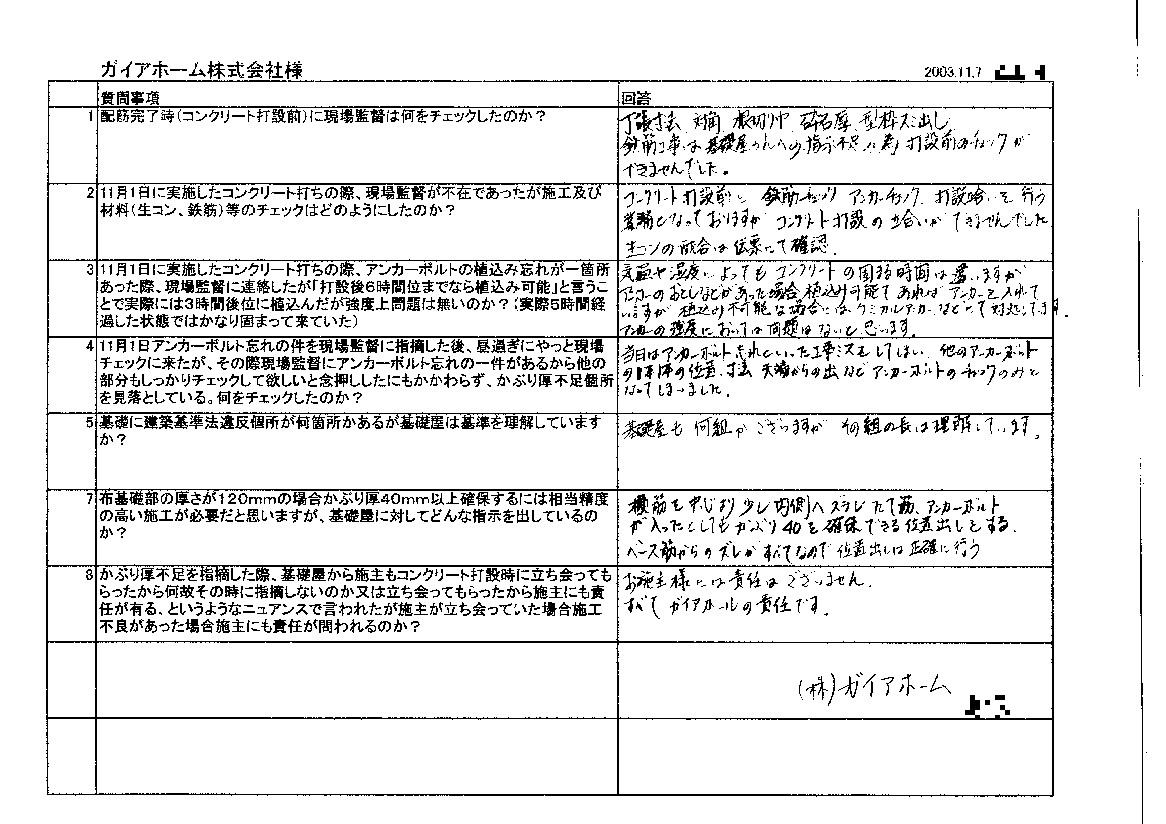 ガイアホーム株式会社様
2003.11.7
質問事項
回答
1 配筋完了時(コンクリート打設前)に現場監督は何をチェックしたのか？
丁張寸法 対角 根切り巾 砕石厚 型枠スミ出し
鉄筋工事は基礎屋さんへの指示不足の為 打設前のチェックが
できませんでした。
2 11月1日に実施したコンクリート打ちの際、現場監督が不在であったが施工及び
材料(生コン、鉄筋)等のチェックはどのようにしたのか？
コンクリート打設前に 鉄筋チェック アンカーチェック 打設立合いを行う
業務となっておりますが コンクリート打設の立合いができませんでした
生コンの配合は伝票にて確認.
3 11月1日に実施したコンクリート打ちの際、アンカーボルトの植込み忘れが一箇所
あった際、現場監督に連絡したが「打設後6時間位までなら植込み可能」と言うこ
とで実際には3時間後位に植込んだが強度上問題は無いのか？(実際5時間経
過した状態ではかなり固まって来ていた)
気温や湿度によってもコンクリートの固まる時間は違いますが
アンカーのおとしなどがあった場合 植込み可能であればアンカーを入れて
いますが 植込み不可能な場合には、ケミカルアンカーなどにて対処してます.
アンカーの強度においては問題はないと思います.
4 11月1日アンカーボルト忘れの件を現場監督に指摘した後、昼過ぎにやっと現場
チェックに来たが、その際現場監督にアンカーボルト忘れの一件があるから他の
部分もしっかりチェックして欲しいと念押ししたにもかかわらず、かぶり厚不足個所
を見落としている。何をチェックしたのか？
当日はアンカーボルト忘れといった工事ミスをしてしまい、他のアンカーボルト
の位置、寸法 天端からの出など アンカーボルトのチェックのみと
なってしまいました.
5 基礎に建築基準法違反個所が何箇所かあるが基礎屋は基準を理解しています
か？
基礎屋も何組かございますが その組の長は理解しています.
7 布基礎部の厚さが120mmの場合かぶり厚40mm以上確保するには相当精度
の高い施工が必要だと思いますが、基礎屋に対してどんな指示を出しているの
か？
横筋を中心より少し内側へズラし たて筋、アンカーボルト
が入ったとしてもかぶり40を確保できる位置出しをする.
ベース筋からのズレがすべてなので位置出しは正確に行う
8 かぶり厚不足を指摘した際、基礎屋から施主もコンクリート打設時に立ち会っても
らったから何故その時に指摘しないのか又は立ち会ってもらったから施主にも責
任が有る、というようなニュアンスで言われたが施主が立ち会っていた場合施工
不良があった場合施主にも責任が問われるのか？
お施主様には責任はございません.
すべてガイアホームの責任です.
(株)ガイアホーム